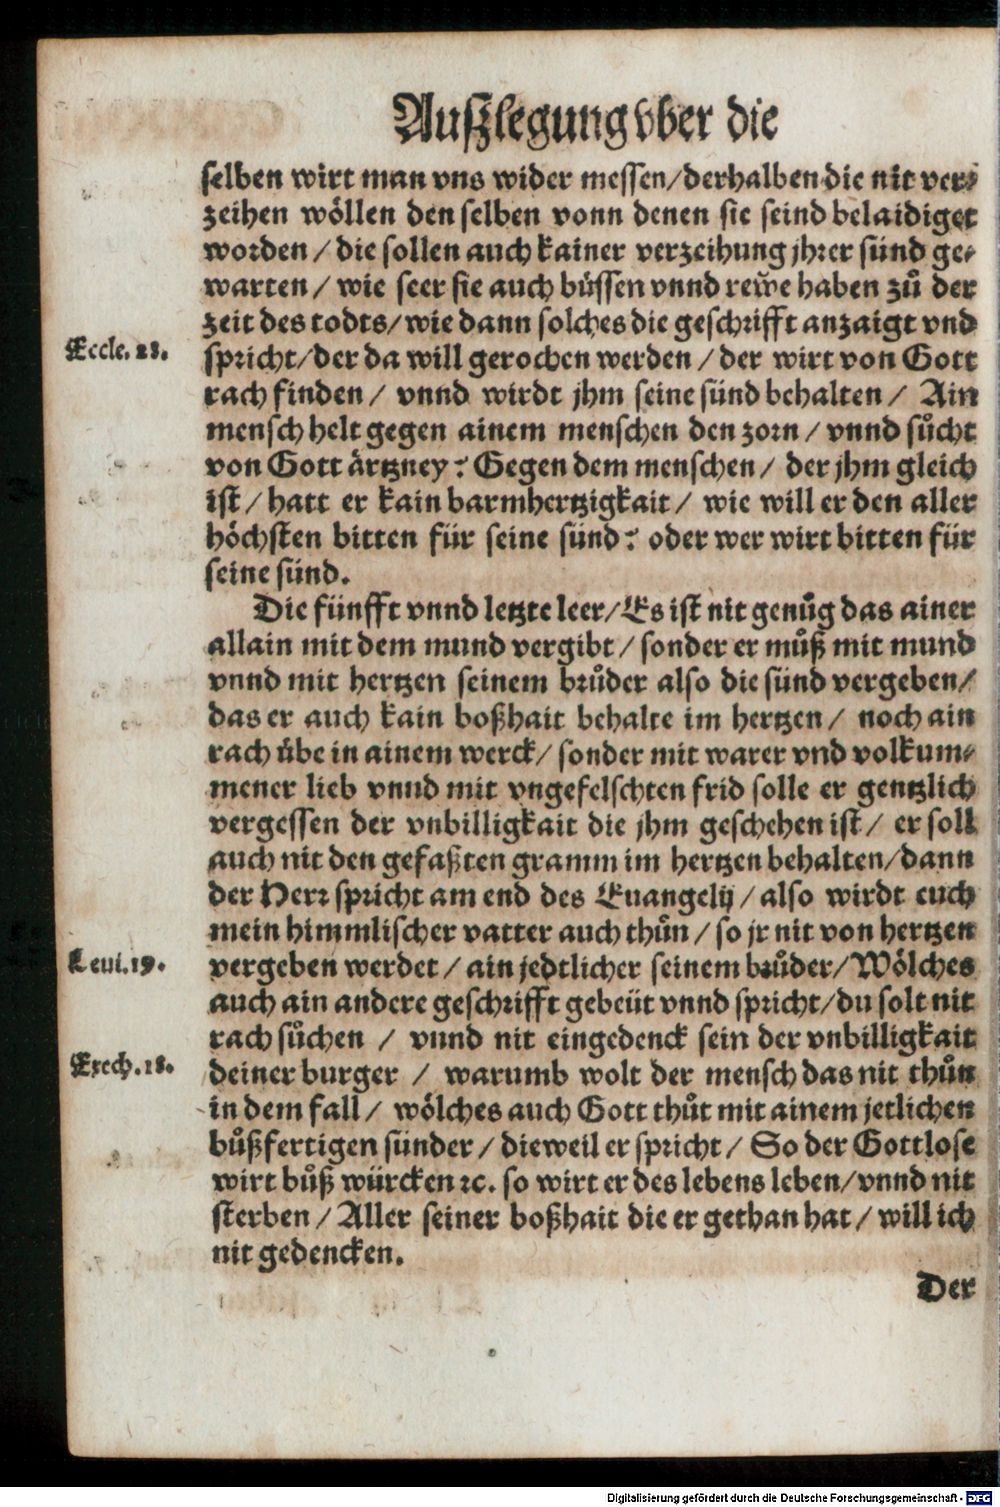 Außlegung vber die
selben wirt man vns wider messen/derhalben die nit ver⸗
zeihen wöllen den selben vonn denen sie seind belaidiget
worden / die sollen auch kainer verzeihung jhrer sünd ge⸗
warten / wie seer sie auch büssen vnnd rewe haben zů der
zeit des todts/wie dann solches die geschrifft anzaigt vnd
Eccle. 28.
spricht/der da will gerochen werden / der wirt von Gott
rach finden / vnnd wirdt jhm seine sünd behalten / Ain
mensch helt gegen ainem menschen den zorn / vnnd sůcht
von Gott ärtzney? Gegen dem menschen / der jhm gleich
ist / hatt er kain barmhertzigkait / wie will er den aller
höchsten bitten für seine sünd? oder wer wirt bitten für
seine sünd.
Die fünfft vnnd letzte leer/Es ist nit genůg das ainer
allain mit dem mund vergibt / sonder er můß mit mund
vnnd mit hertzen seinem brůder also die sünd vergeben/
das er auch kain boßhait behalte im hertzen / noch ain
rach übe in ainem werck/ sonder mit warer vnd volkum⸗
mener lieb vnnd mit vngefelschten frid solle er gentzlich
vergessen der vnbilligkait die jhm geschehen ist / er soll
auch nit den gefaßten gramm im hertzen behalten/dann
der Herr spricht am end des Euangelij / also wirdt euch
mein himmlischer vatter auch thůn / so jr nit von hertzen
Leui. 19.
vergeben werdet / ain jedtlicher seinem brůder/Wölches
auch ain andere geschrifft gebeüt vnnd spricht/du solt nit
rach sůchen / vnnd nit eingedenck sein der vnbilligkait
Ezech. 18.
deiner burger / warumb wolt der mensch das nit thůn
in dem fall / wölches auch Gott thůt mit ainem jetlichen
bůßfertigen sünder / dieweil er spricht / So der Gottlose
wirt bůß würcken ꝛc. so wirt er des lebens leben/vnnd nit
sterben / Aller seiner boßhait die er gethan hat / will ich
nit gedencken.
Der
Digitalisierung gefördert durch die Deutsche Forschungsgemeinschaft - DFG